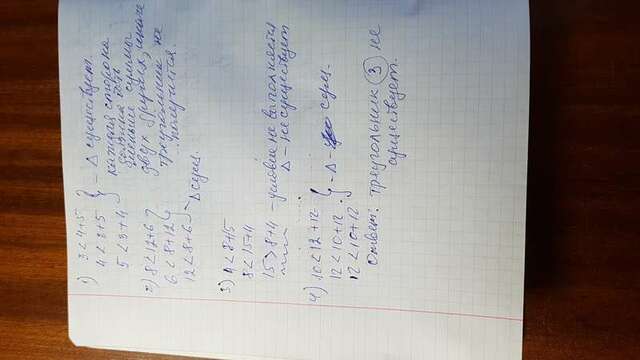 1) 3 < 4+5
4 < 3+5
5 < 3+4
} - Δ существует.
каждая сторона
должна быть
меньше суммы
двух других, иначе
треугольник не
получится.
2) 8 < 12+6
6 < 8+12
12 < 8+6
} - Δ сущ.
3) 4 < 8+15
8 < 15+4
15 > 8+4 - условие не выполняется
Δ - не существует
4) 10 < 12+12
12 < 10+12
12 < 10+12
} - Δ - сущ.
Ответ: треугольник 3 не
существует.